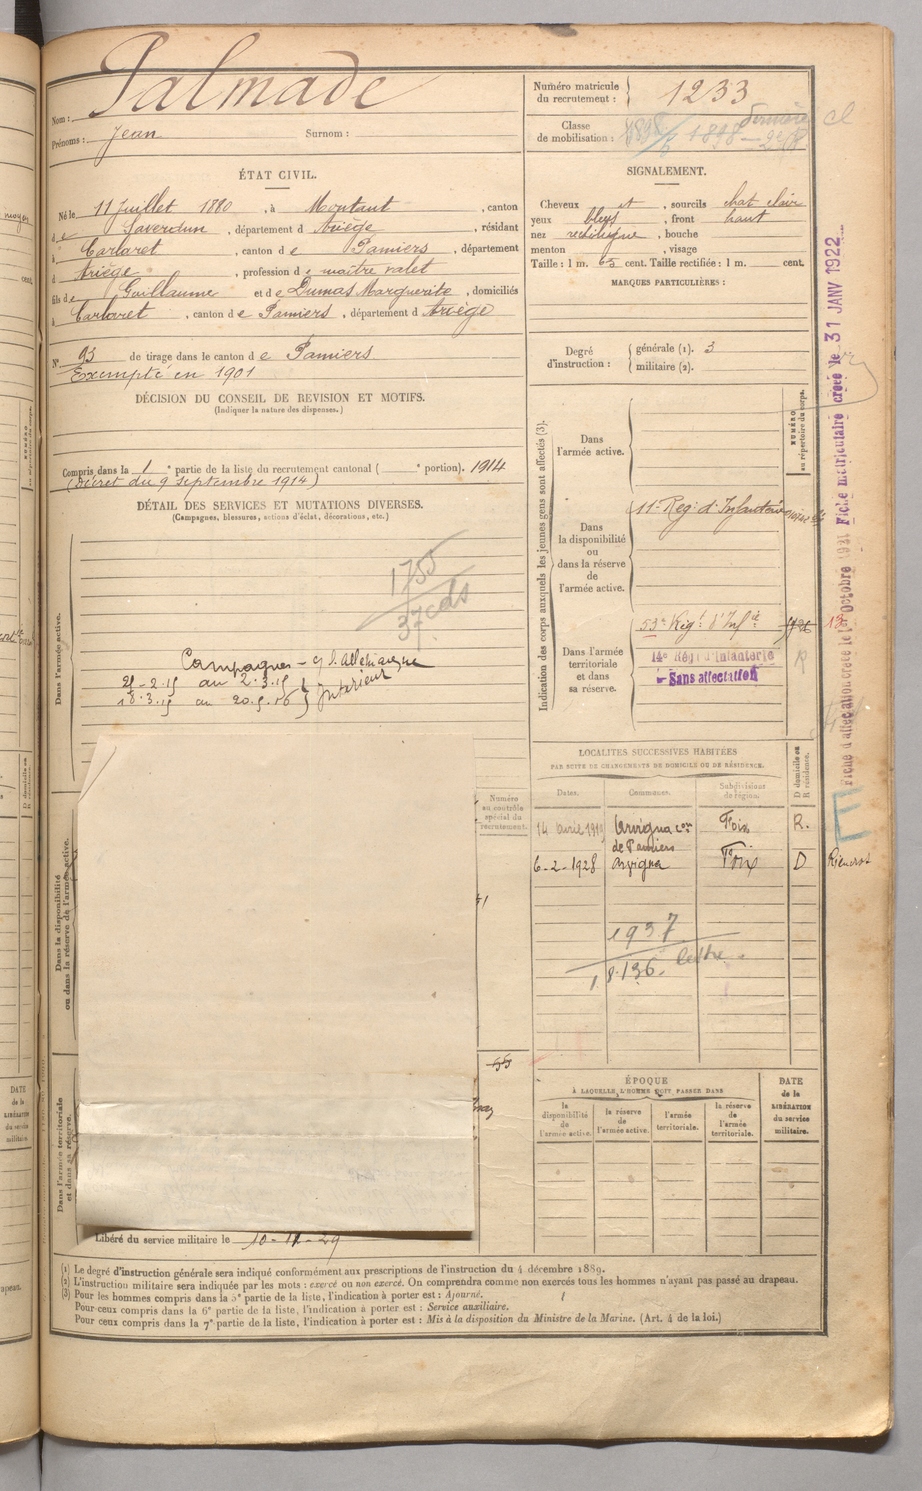 Palmade
Nom :
Prénoms : Jean Surnom :
ÉTAT CIVIL.
Né le 11 Juillet 1880, à Montaut, canton
de Saverdun, département d Ariège, résidant
à Carlaret, canton de Pamiers, département
d Ariège, profession de maître valet
fils de Guillaume et de Dumas Marguerite, domiciliés
à Carlaret, canton de Pamiers, département d Ariège
N° 93 de tirage dans le canton de Pamiers
Exempté en 1901
DÉCISION DU CONSEIL DE REVISION ET MOTIFS.
(Indiquer la nature des dispenses.)
Compris dans la 1e partie de la liste du recrutement cantonal ( e portion). 1914
(Décret du 9 septembre 1914)
DÉTAIL DES SERVICES ET MUTATIONS DIVERSES.
(Campagnes, blessures, actions d'éclat, décorations, etc.)
Dans l'armée active.
1755
37 cds
Campagnes - C. l'Allemagne
21-2.15 au 2.3.15 } Intérieur
18.3.15 au 20.5.16
Numéro
au contrôle
spécial du
recrutement.
Dans la disponibilité
ou dans la réserve de l'armée active.
Dans l'armée territoriale
et dans sa réserve.
55
Libéré du service militaire le 10-11-29
Numéro matricule
du recrutement : } 1233
Classe
de mobilisation : 1898
dernière cl
SIGNALEMENT.
Cheveux et, sourcils chat clair
yeux bleus, front haut
nez rectiligne, bouche
menton, visage
Taille : 1 m. 65 cent. Taille rectifiée : 1 m. cent.
MARQUES PARTICULIÈRES :
Degré
d'instruction : { générale (1). 3
{ militaire (2).
Indication des corps auxquels les jeunes gens sont affectés (3).
NUMÉRO
au répertoire du corps.
Dans
l'armée active.
Dans
la disponibilité
ou
dans la réserve
de
l'armée active.
11e Rég. d'Infanterie
Dans l'armée
territoriale
et dans
sa réserve.
53e Rég.t d'Inf.ie
13
14e Rég d'Infanterie
Sans affectation
R
LOCALITÉS SUCCESSIVES HABITÉES
PAR SUITE DE CHANGEMENTS DE DOMICILE OU DE RÉSIDENCE.
Dates. Communes. Subdivisions
de région. D domicile ou
R résidence.
14 avril 1919 Arvigna con Foix R.
de Pamiers
6-2-1928 Arvigna Foix D
1937
18.136. lettre
ÉPOQUE
À LAQUELLE L'HOMME DOIT PASSER DANS
la
disponibilité
de
l'armée active.
la réserve
de
l'armée active.
l'armée
territoriale.
la réserve
de
l'armée
territoriale.
DATE
de la
LIBÉRATION
du service
militaire.
Fiche d'affectation créée le 1er Octobre 1921 Fiche matriculaire créée le 31 JANV 1922
(1) Le degré d'instruction générale sera indiqué conformément aux prescriptions de l'instruction du 4 décembre 1889.
(2) L'instruction militaire sera indiquée par les mots : exercé ou non exercé. On comprendra comme non exercés tous les hommes n'ayant pas passé au drapeau.
(3) Pour les hommes compris dans la 5e partie de la liste, l'indication à porter est : Ajourné.
Pour ceux compris dans la 6e partie de la liste, l'indication à porter est : Service auxiliaire.
Pour ceux compris dans la 7e partie de la liste, l'indication à porter est : Mis à la disposition du Ministre de la Marine. (Art. 4 de la loi.)